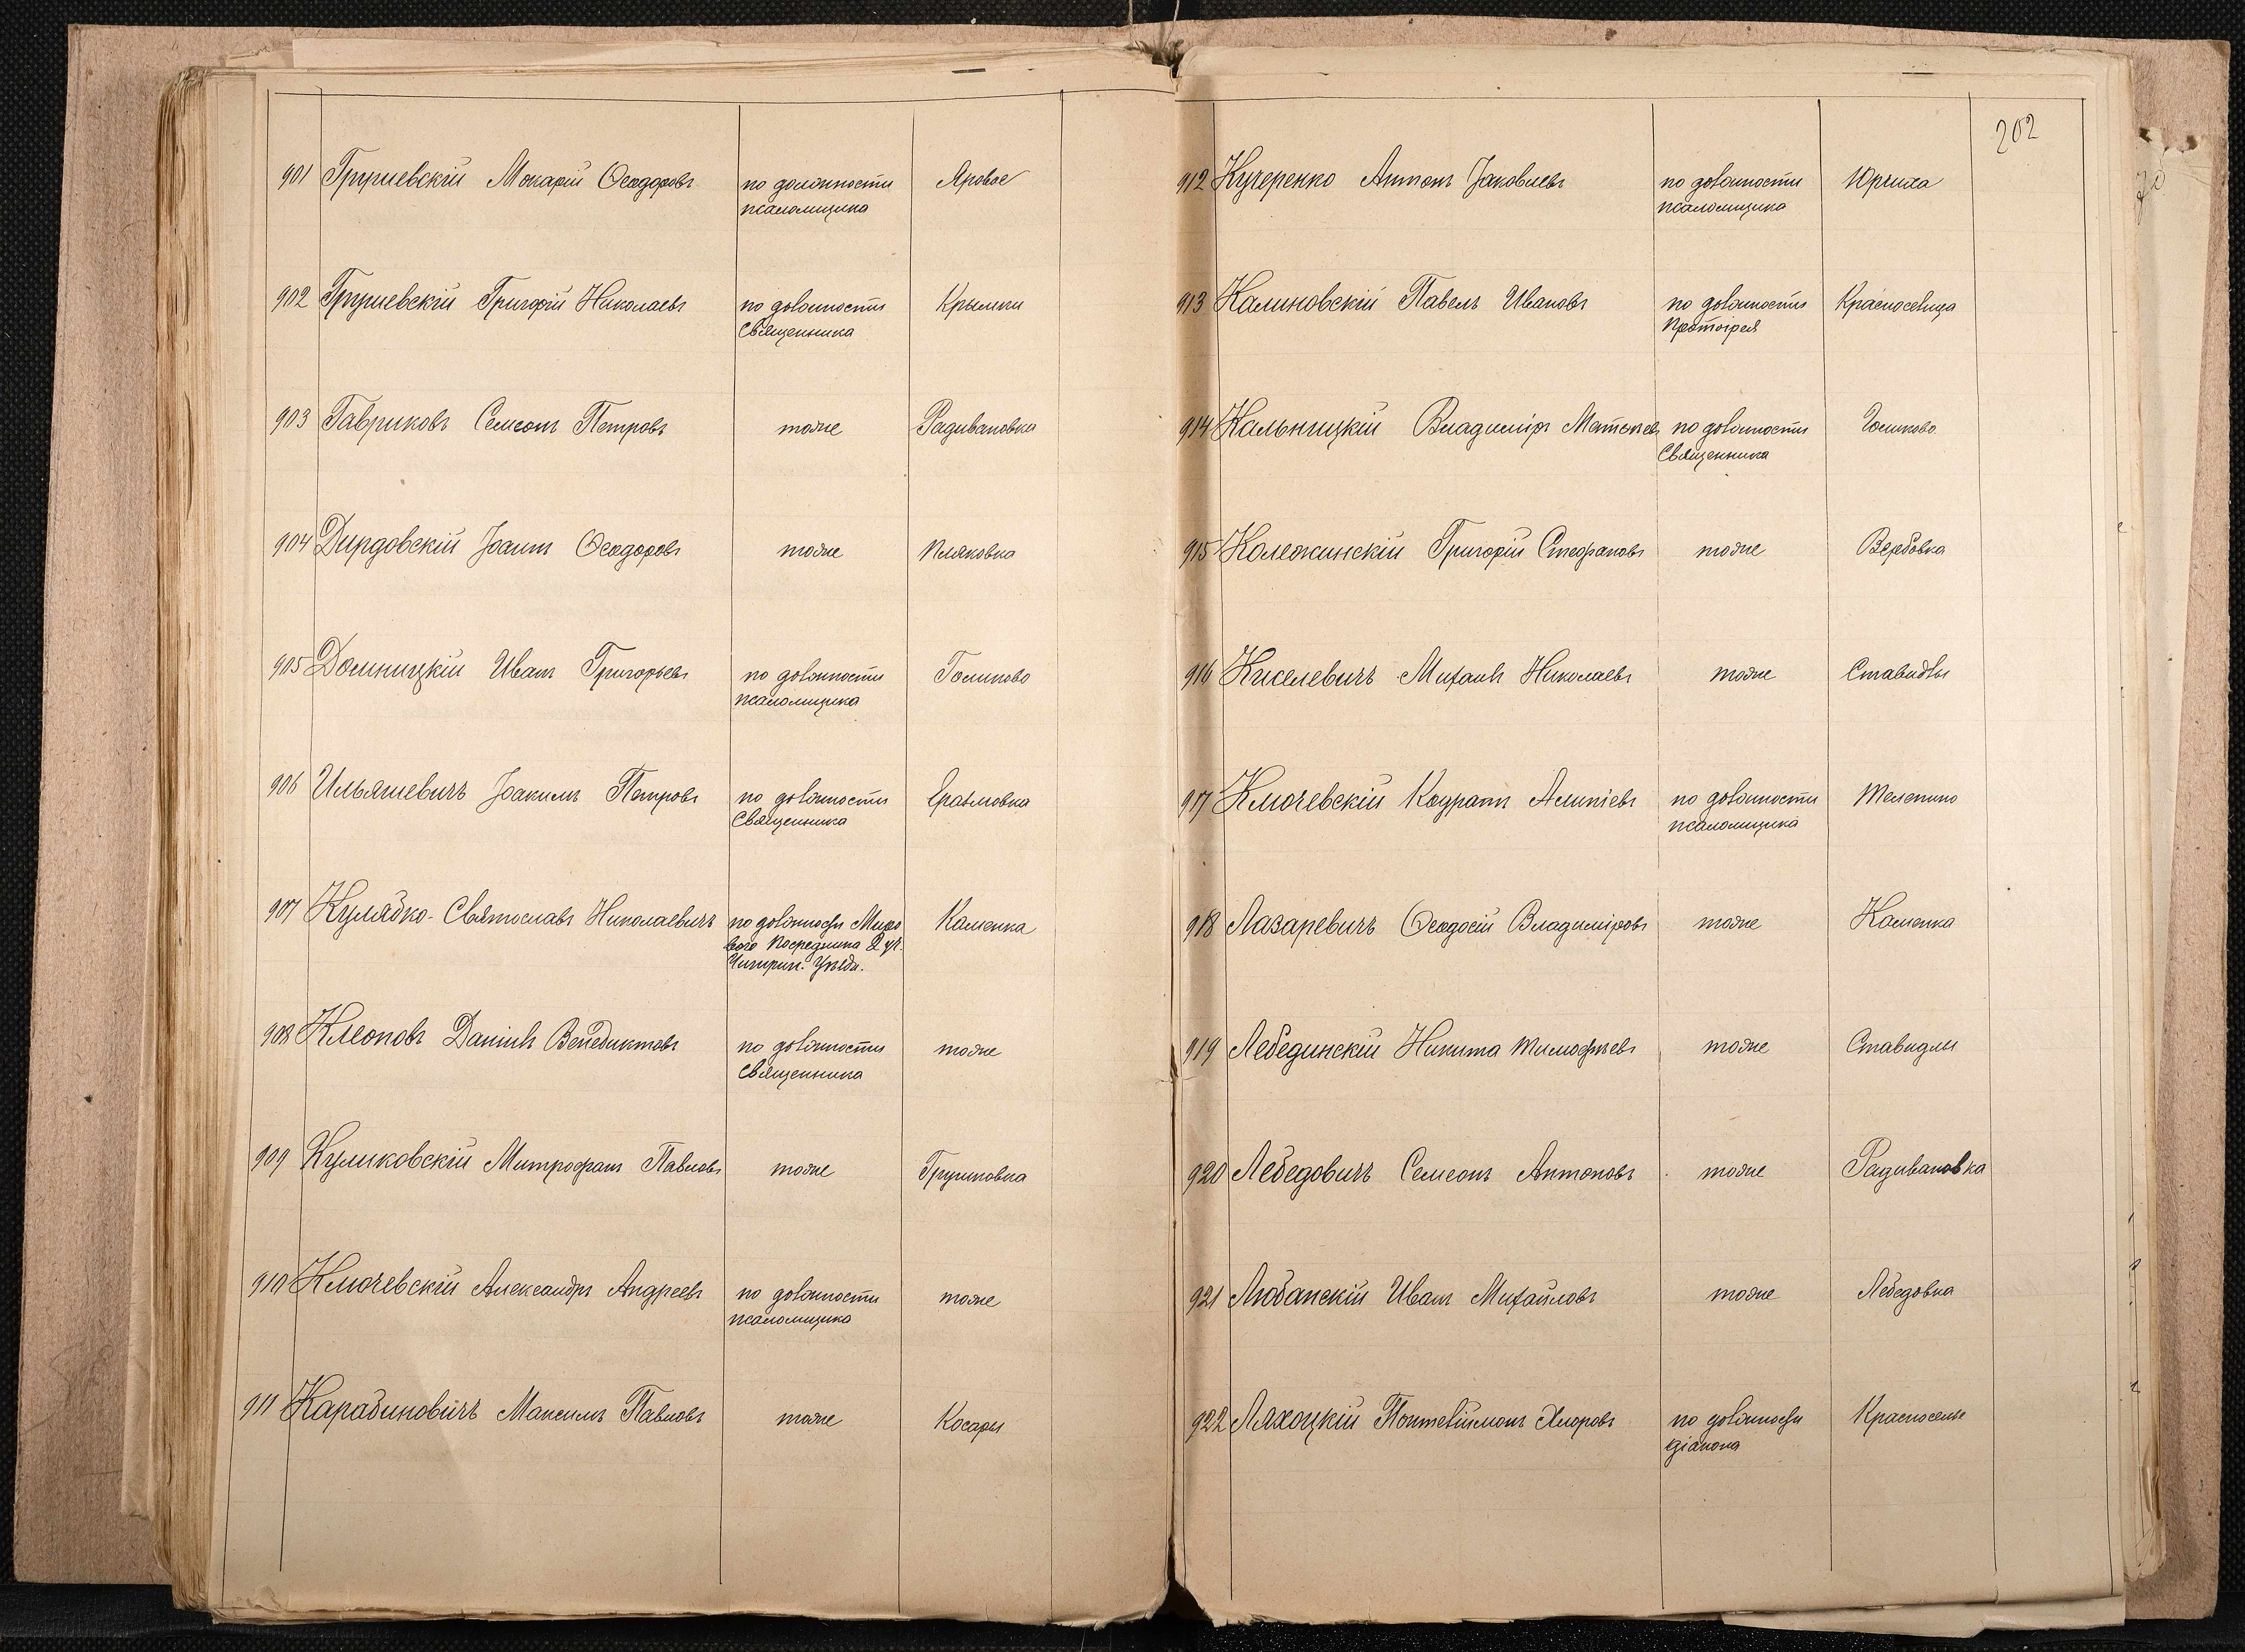 901 Грушевскій Макарій Ѳеодоровъ по должности Яровое
псаломщика
902 Грушевскій Григорій Николаевъ по должности Крымки
Священника
903 Гавриковъ Семеонъ Петровъ тоже Радивановка
904 Дирдовскій Іоаннъ Ѳеодоровъ тоже Пляковка
905 Домницкій Иванъ Григорьевъ по должности Голиково
псаломщика
906 Ильяшевичъ Іоакимъ Петровъ по должности
Священника
907 Кулябко-Святославъ Николаевичъ по должности Миро Каменка
вого Посредника 2 уч.
Чигирин. Уѣзда.
908 Клеоповъ Даніилъ Венедиктовъ по должности тоже
Священника
909 Куликовскій Митрофанъ Павловъ тоже Грушковка
910 Ключевскій Александръ Андреевъ по должности тоже
псаломщика
911 Карабиновичъ Максимъ Павловъ тоже Косары
202
912 Кучеренко Антонъ Іаковлевъ по должности Юрчиха
псаломщика
913 Калиновскій Павелъ Ивановъ по должности Красносельца
Протоіерея
914 Кальницкій Владиміръ по должности Голиково
Священника
915 Колежинскій Григорій Стефановъ тоже Вербовка
916 Киселевичъ Михаилъ Николаевъ тоже Ставидлы
917 Ключевскій Кодратъ Алипіевъ по должности Телепино
псаломщика
918 Лазаревичъ Ѳеодосій Владиміровъ тоже Каменка
919 Лебединскій Никита Тимофѣевъ тоже Ставидлы
920 Лебедовичъ Семеонъ Антоновъ тоже Радивановка
921 Любанскій Иванъ Михайловъ тоже Лебедовка
922 Ляхоцкій по должности Красноселье
діакона